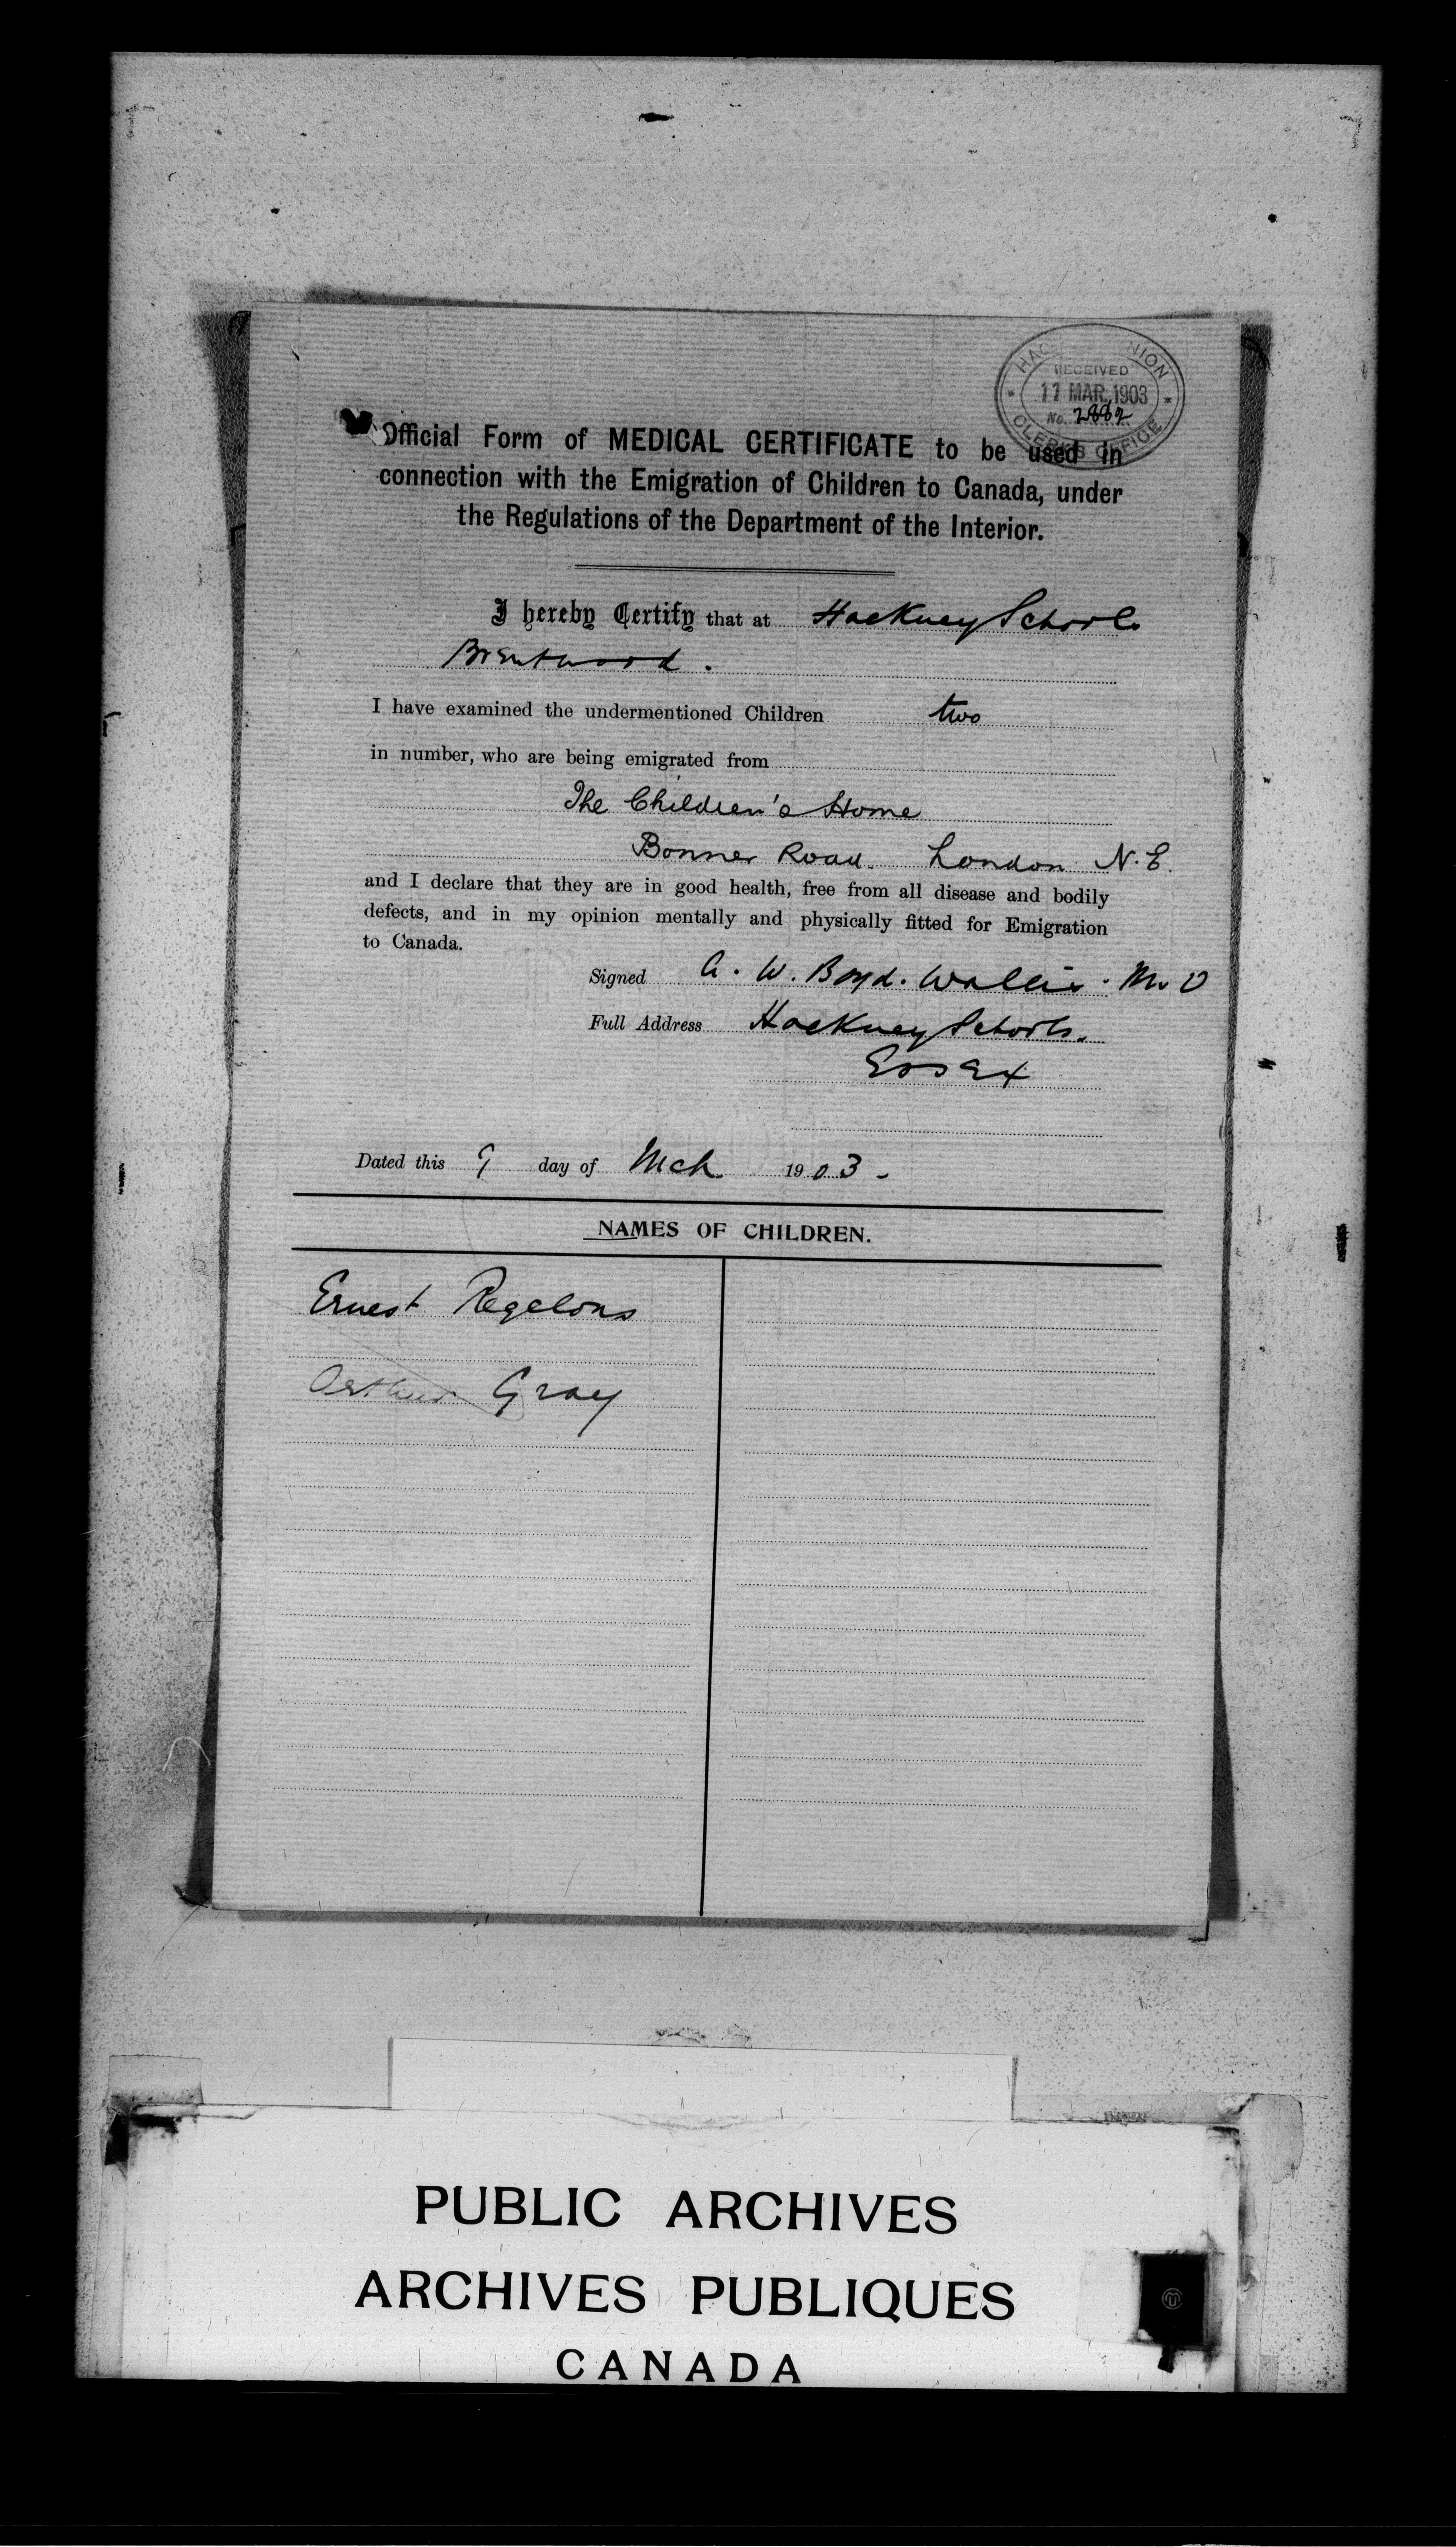 HAC NION
RECEIVED
11 MAR. 1903
No. 2882
CLERK'S OFFICE
Official Form of MEDICAL CERTIFICATE to be used in
connection with the Emigration of Children to Canada, under
the Regulations of the Department of the Interior.
I hereby Certify that at Hackney Schools
Brentwood.
I have examined the undermentioned Children two
in number, who are being emigrated from
The Children's Home
Bonner Road. London N.E.
and I declare that they are in good health, free from all disease and bodily
defects, and in my opinion mentally and physically fitted for Emigration
to Canada.
Signed A. W. Boyd. Wallis. M.O
Full Address Hackney Schools.
Essex
Dated this 9 day of Mch 1903-
NAMES OF CHILDREN.
Ernest Regelous
Arthur Gray
PUBLIC ARCHIVES
ARCHIVES PUBLIQUES
CANADA